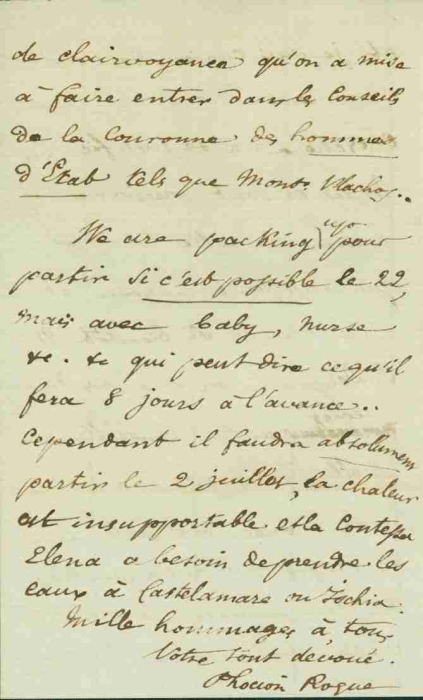 de clairvoyance qu'on a mise
à faire entrer dans les Conseils
de la Couronne des hommes
d'Etat tels que Mont. Vlachos..
We are packing up pour
partir si c'est possible le 22,
mais avec baby, nurse
&. &c qui peut dire ce qu'il
fera 8 jours à l'avance..
Cependant il faudra absolument
partir le 2 juillet, la chaleur
est insupportable et la Contessa
Elena a besoin de prendre les
eaux à Castelamare ou Ischia.
Mille hommages à tous
Votre tout devoué.
Phocion Roque